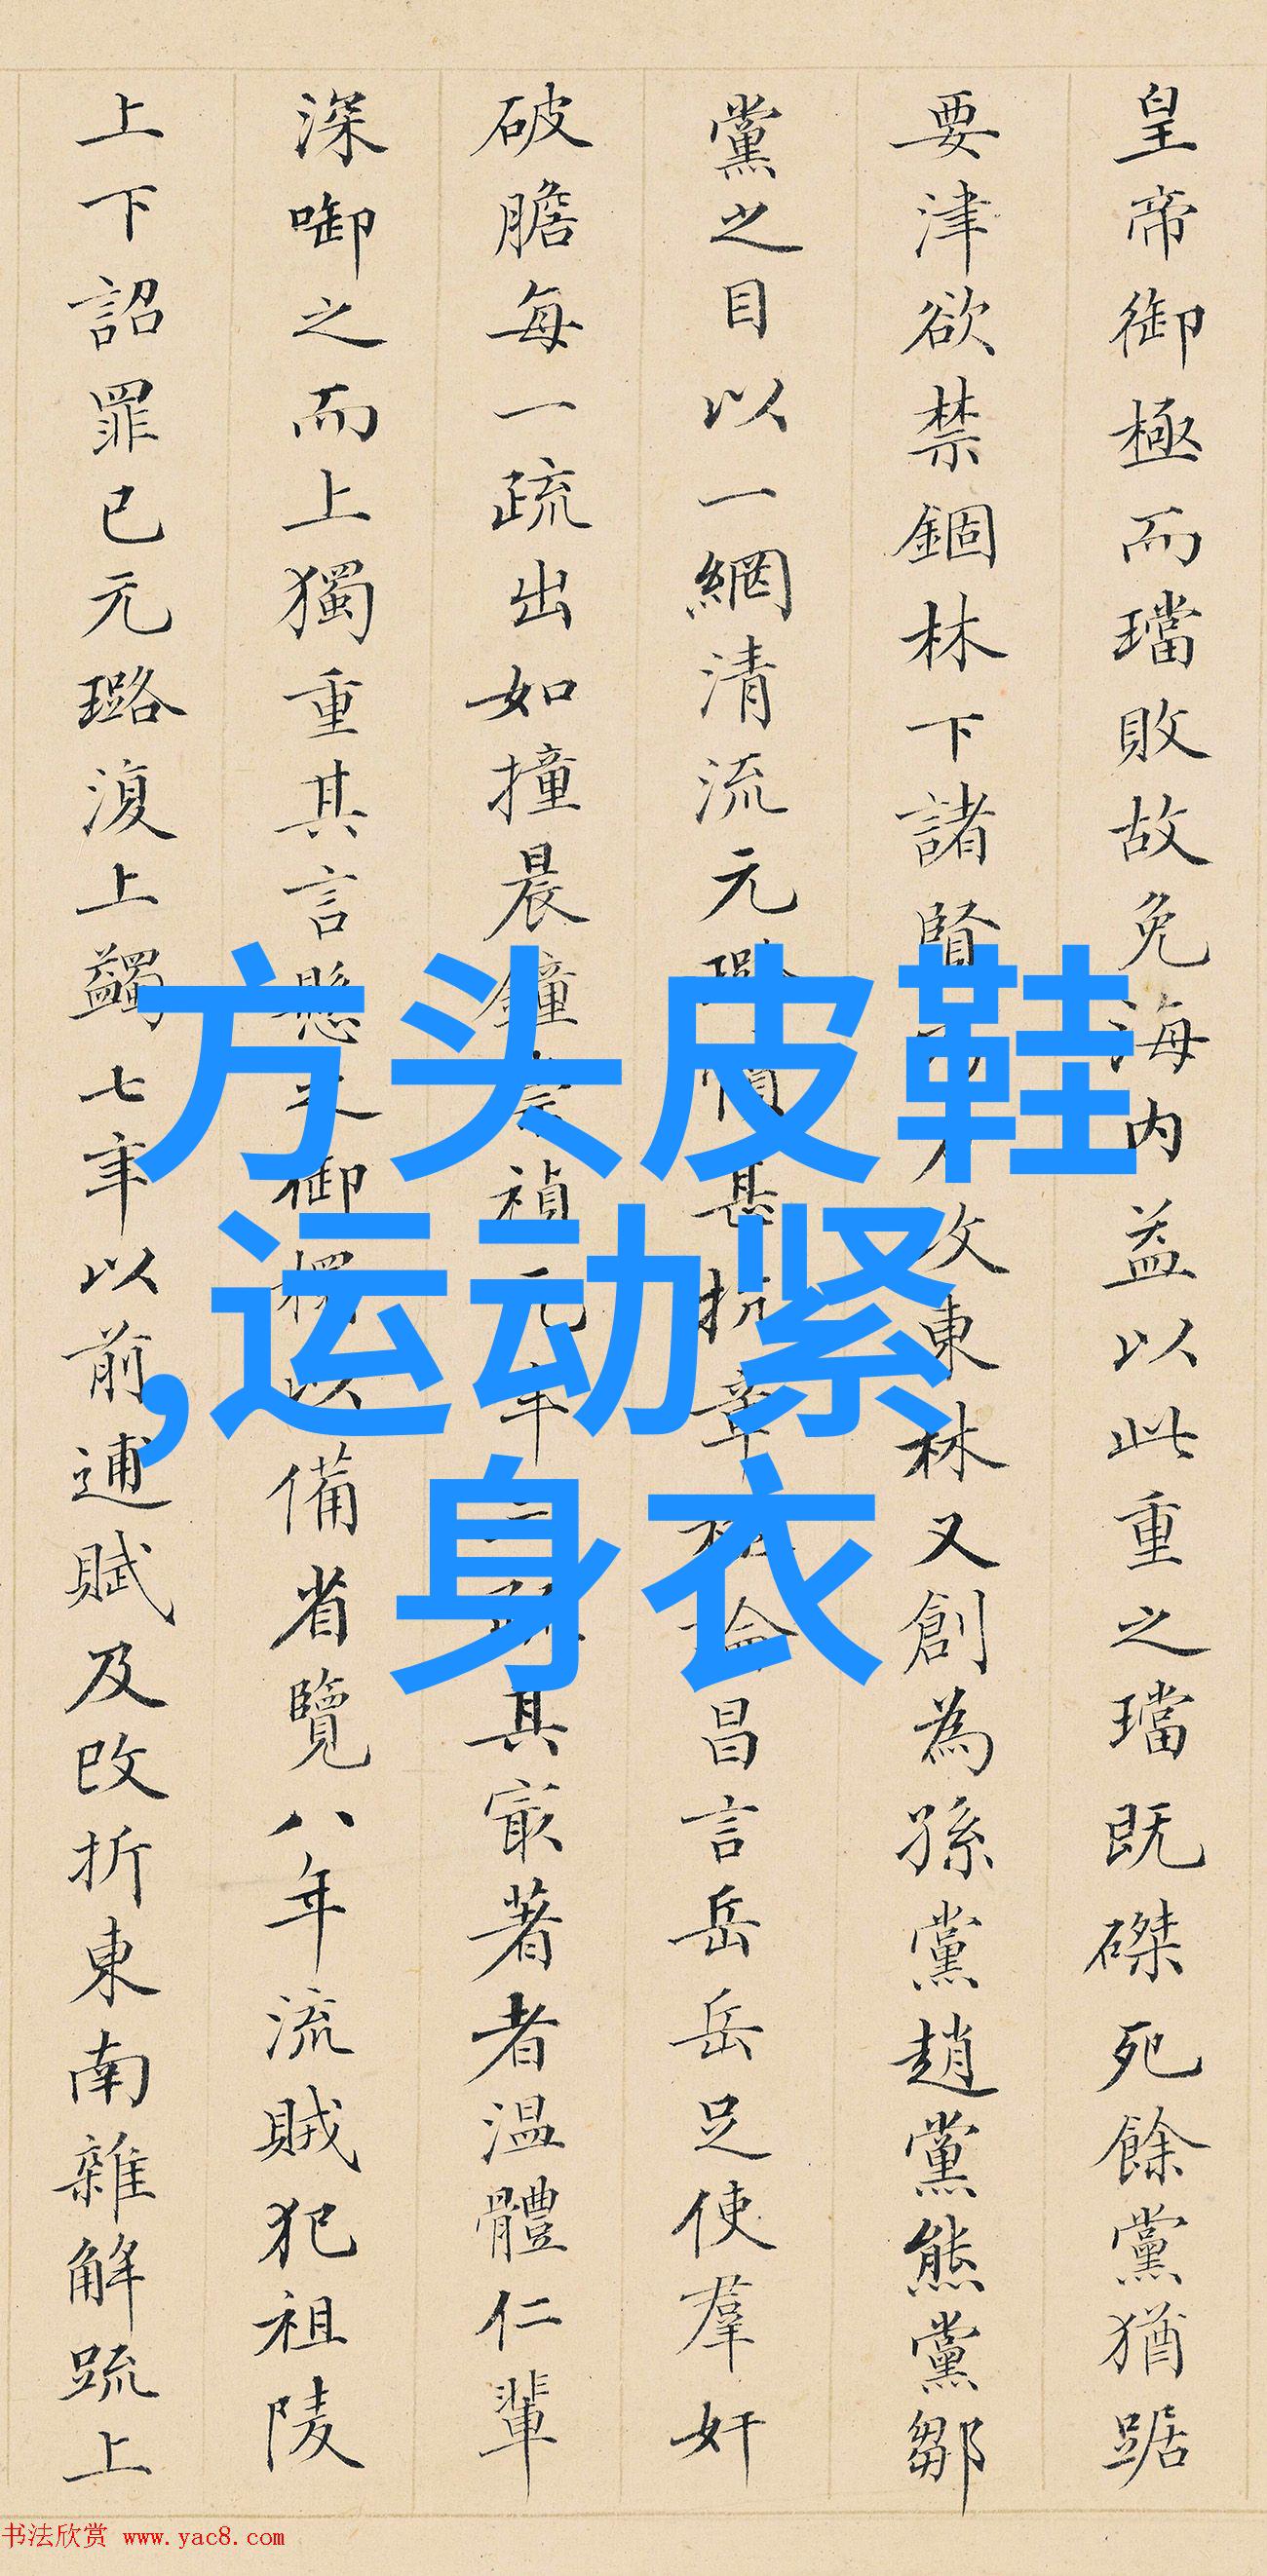 皇帝御極而璫敗故免海内益以此重之璫既磔死餘黨猶踞
要津欲禁錮林下諸賢攻東林又創為孫黨趙黨熊黨鄒
黨之目以一網清流元甚抗章昌言岳岳足使羣奸
破膽每一疏出如撞晨鐘崇禎元年其最著者溫體仁輩
深啣之而上獨重其言懸之御以備省覽八年流賊犯祖陵
上下詔罪已元璐復上蠲七年以前逋賦及改折東南雜解疏上
方头皮鞋
,运动紧
身衣
书法欣赏 www.yac8.com